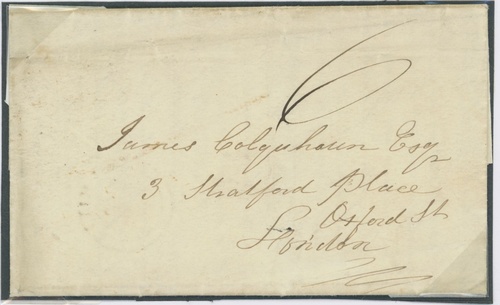 6
James Colquhoun Esqr
3 Stratford Place
Oxford St
London